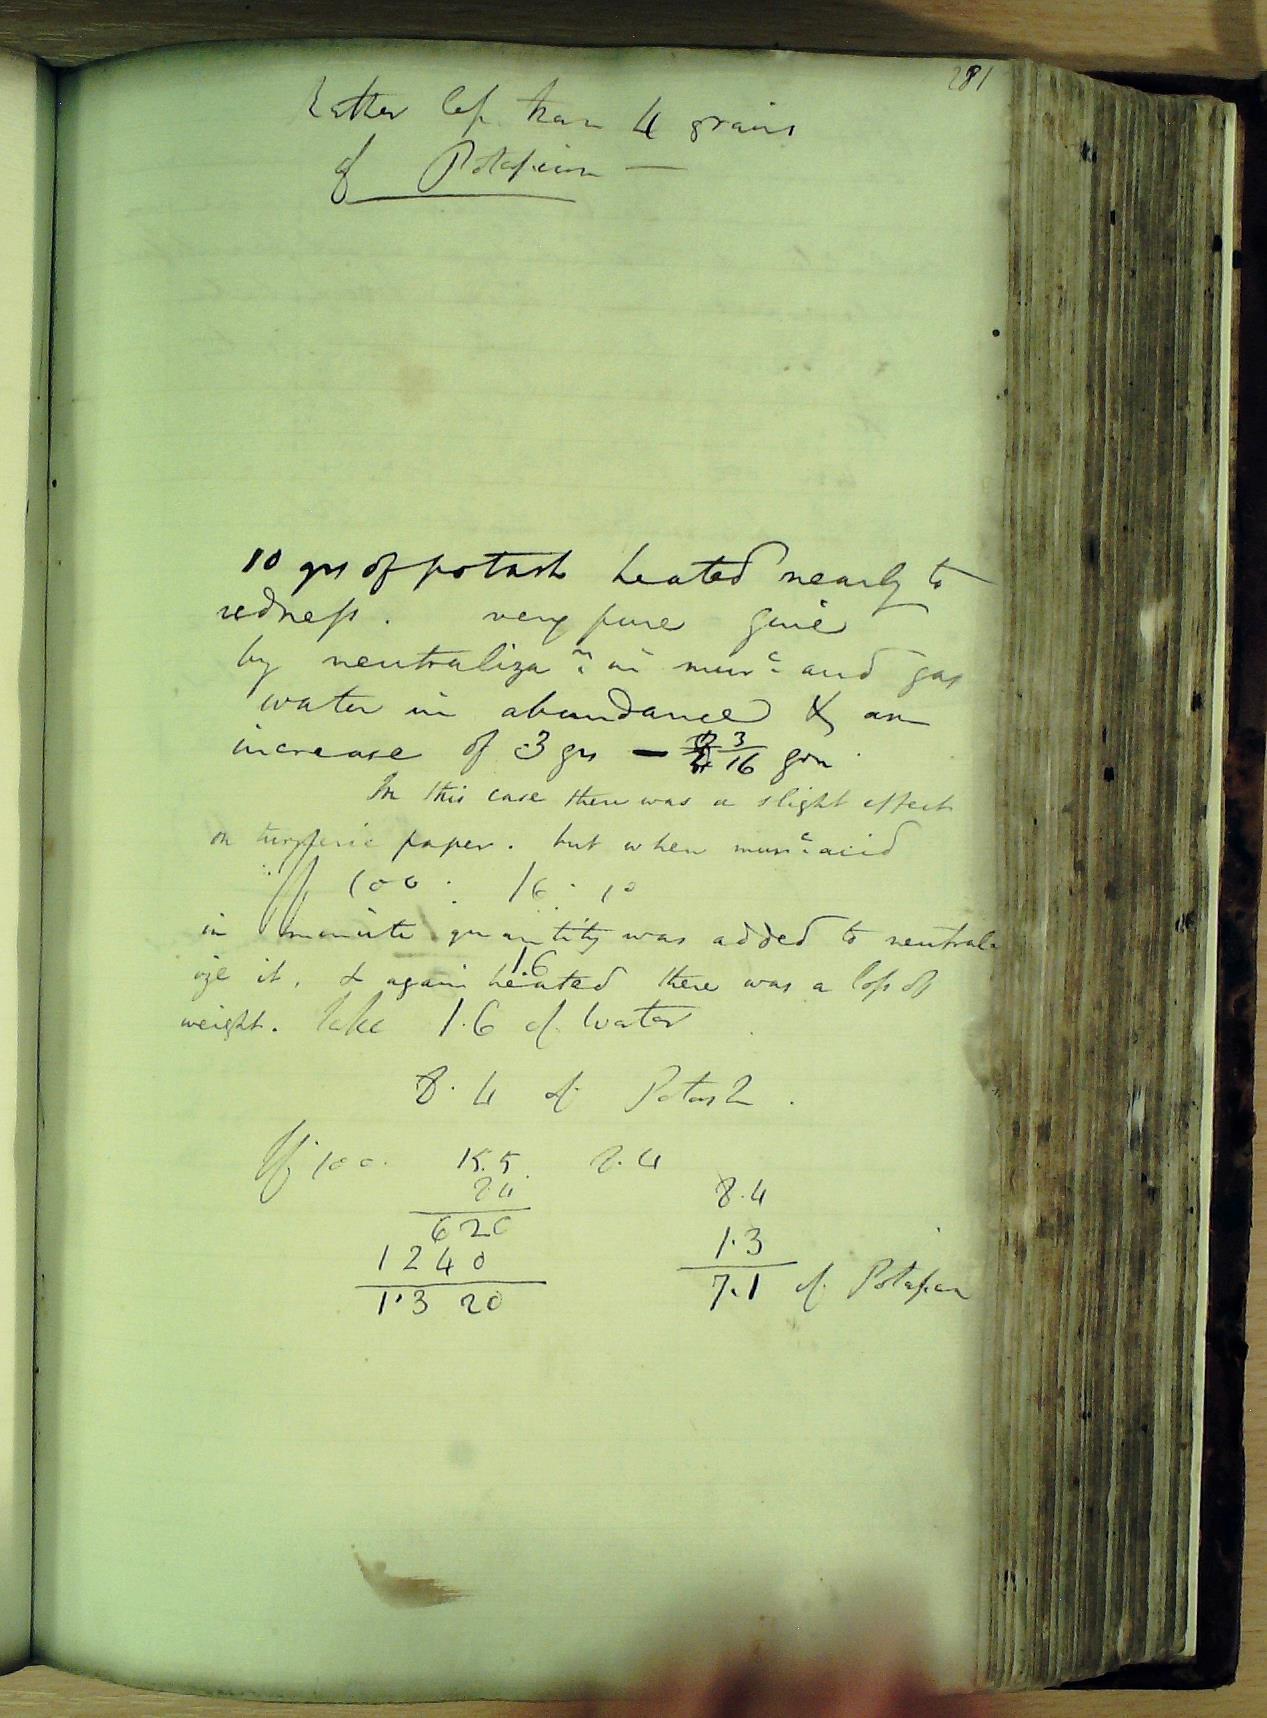 281
rather less than 4 grains
of Potassium —
10 grs of potash heated nearly to
redness. very pure give
by neutralizaⁿ in murᶜ and gas
water in abundance & an
increase of 3 grs — 3/16 grn
In this case there was a slight effect
on turmeric paper. but when murᶜ acid
If 100 : 16 : 10
in minute quantity was added to neutral-
ize it, & again heated there was a loss of
16
weight. take 1.6 of water
8.4 of Potash.
If 100. 15.5 8.4
8.4
620
1240
1.320
8.4
1.3
7.1 of Potassium